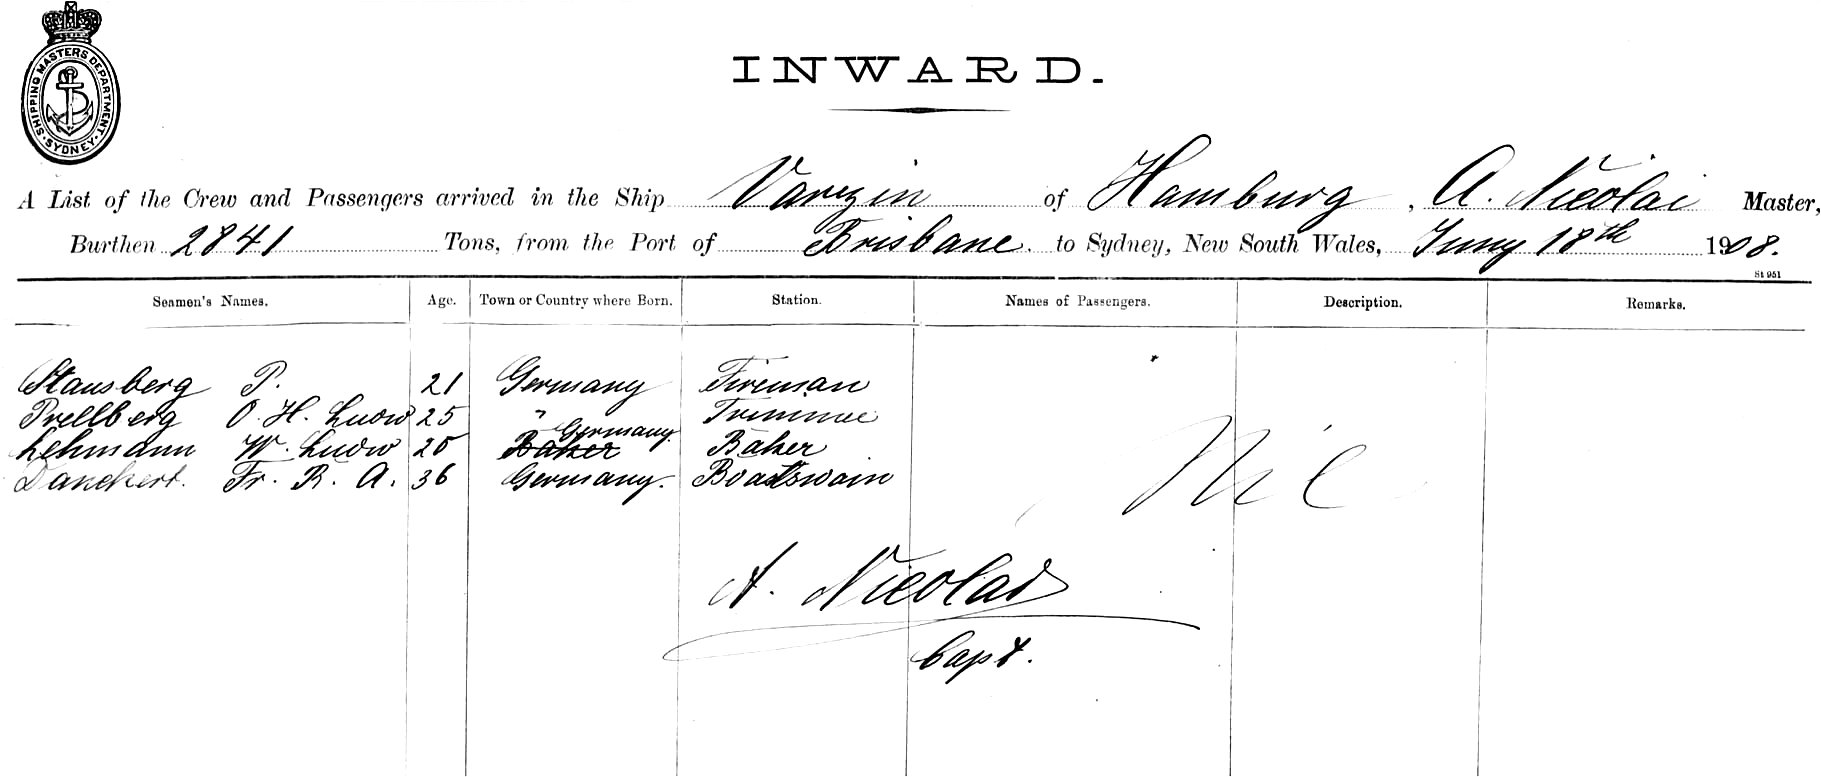 SHIPPING MASTERS DEPARTMENT. SYDNEY.
INWARD.
A List of the Crew and Passengers arrived in the Ship Varzin of Hamburg, A. Nicolai Master,
Burthen 2841 Tons, from the Port of Brisbane. to Sydney, New South Wales, Juny 18th 1908.
St 951
Seamen's Names. Age. Town or Country where Born. Station. Names of Passengers. Description. Remarks.
Stausberg P. 21 Germany Fireman
Prellberg O. H. Ludw 25 " Trimmer
Germany
Lehmann W. Ludw 20 Baker Baker
Danckert. Fr. R. A. 36 Germany. Boatswain
Nil
A. Nicolai
Capt.